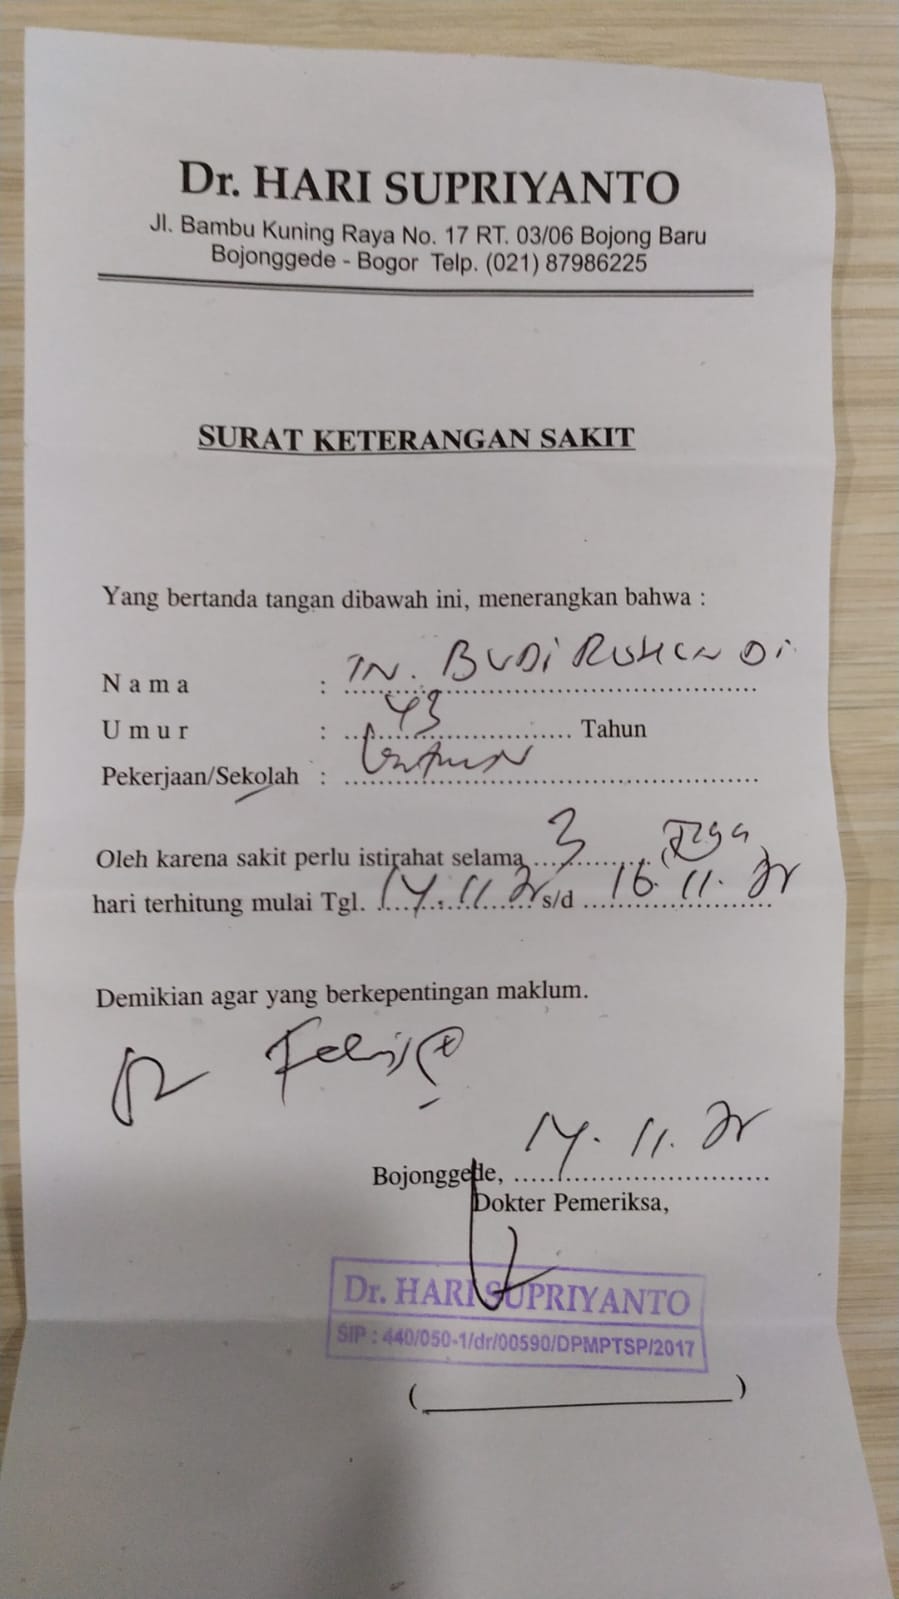 Dr. HARI SUPRIYANTO
Jl. Bambu Kuning Raya No. 17 RT. 03/06 Bojong Baru
Bojonggede - Bogor Telp. (021) 87986225
SURAT KETERANGAN SAKIT
Yang bertanda tangan dibawah ini, menerangkan bahwa :
Nama : TN. BUDI RUHENDI
Umur : 43 Tahun
Pekerjaan/Sekolah :
Oleh karena sakit perlu istirahat selama 3 (Tiga
hari terhitung mulai Tgl. 14.11. s/d 16.11.
Demikian agar yang berkepentingan maklum.
Bojonggede, 14.11.
Dokter Pemeriksa,
Dr. HARI SUPRIYANTO
SIP : 440/050-1/dr/00590/DPMPTSP/2017